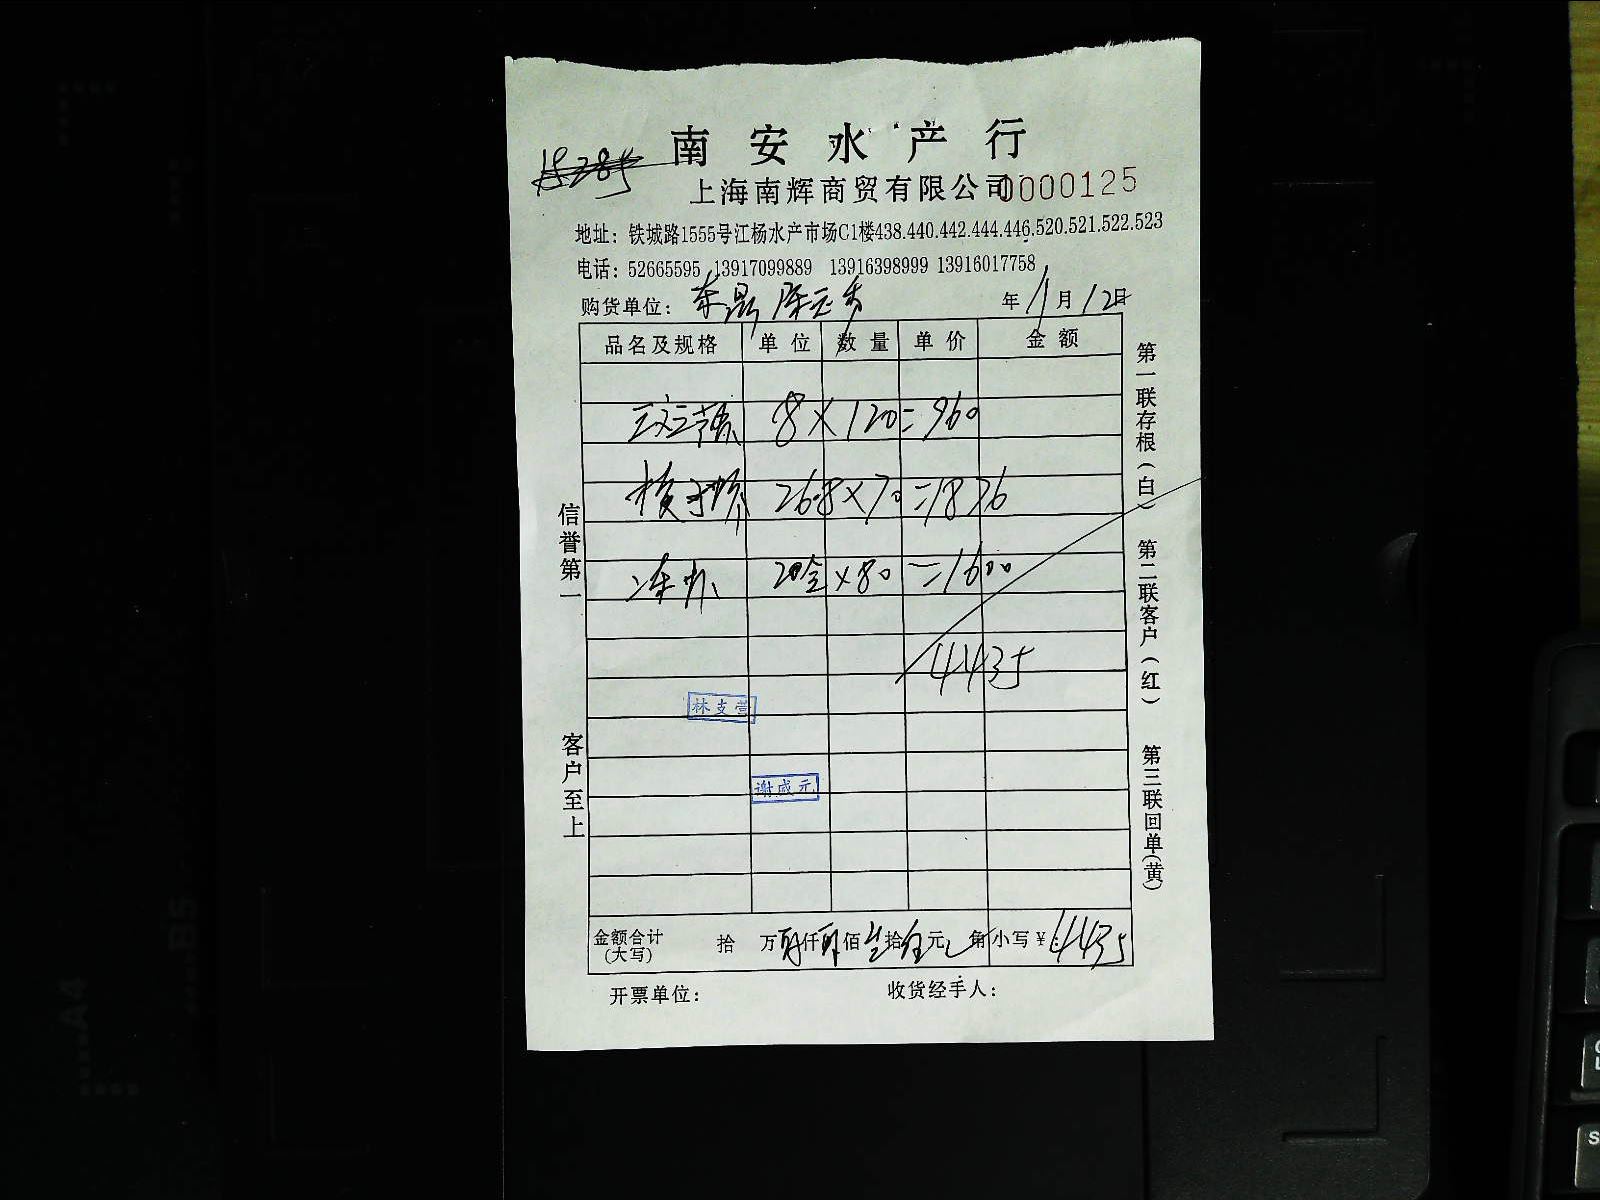 南安水产行
上海南辉商贸有限公司 0000125
地址：铁城路1555号江杨水产市场C1楼438.440.442.444.446.520.521.522.523
电话：52665595 13917099889 13916398999 13916017758
购货单位： 年11月12日
品名及规格 单位 数量 单价 金额
8×120=960
26.8×70=1876
20 ×80=1600
4435
林支萱
谢成元
金额合计(大写) 拾 万 肆仟 肆佰 叁拾 伍元 角 小写¥：4435
开票单位： 收货经手人：
信誉第一
客户至上
第一联存根(白)
第二联客户(红)
第三联回单(黄)